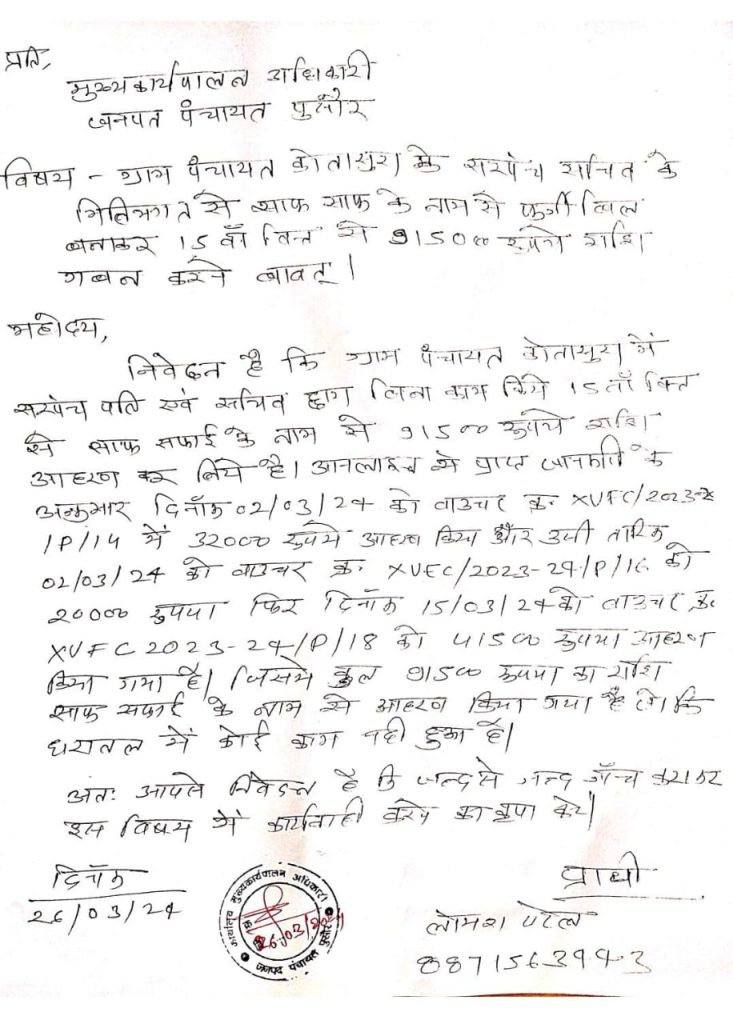 प्रति,
मुख्यकार्यपालन अधिकारी
जनपत पंचायत पुसौर
विषय - ग्राम पंचायत कोतासुरा के सरपंच सचिव के
मिलिभगत से साफ साफ के नाम से फर्जी बिल
बनाकर 15 वाँ वित्त से 91500 रुपये राशि
गबन करने बावत् ।
महोदय,
निवेदन है कि ग्राम पंचायत कोतासुरा में
सरपंच पति एवं सचिव द्वारा बिना काम किये 15 वाँ वित्त
से साफ सफाई के नाम से 91500 रुपये राशि
आहरण कर लिये है। आनलाइन से प्राप्त जानकारी के
अनुसार दिनाँक 02/03/24 को वाउचर क्र. XVFC/2023-2
/P/14 में 32000 रुपये आहरण किया और उसी तारिक
02/03/24 को वाउचर क्र. XVFC/2023-24/P/16 को
20000 रुपया फिर दिनाँक 15/03/24 को वाउचर क्र.
XVFC2023-24/P/18 को 41500 रुपया आहरण
किया गया है। जिसमे कुल 91500 रुपया का राशि
साफ सफाई के नाम से आहरण किया गया है जो कि
धरातल में कोई काम नही हुआ है।
अतः आपसे निवेदन है कि जल्द से जल्द जाँच कराकर
इस विषय में कार्यवाही करने का कृपा करे।
दिनाँक
26/03/24
कार्यालय मुख्यकार्यपालन अधिकारी
26/03/2024
जनपद पंचायत पुसौर
प्रार्थी
लोमश पटेल
8871563943